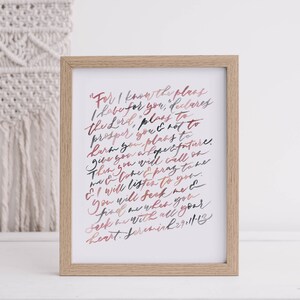 "For I know the plans
I have for you," declares
the Lord, "plans to
prosper you & not to
harm you, plans to
give you a hope & future.
Then you will call on
me & come & pray to me
& I will listen to you.
You will seek me &
find me when you
seek me with all your
heart." Jeremiah 29:11-13